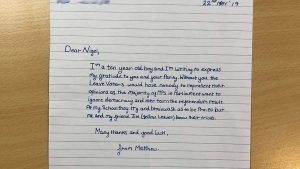 22nd May '19
Dear Nigel,
I'm a ten year old boy and I'm writing to express
my gratitude to you and your Party. Without you the
Leave Voters would have nobody to represent their
opinions as the majority of MPs in Parliament want to
ignore democracy and over turn the referendum result.
At my School they try and brainwash us to be Pro EU but
me and my friend Tim (fellow Leaver) know their tricks.
Many thanks and good luck,
From Matthew.